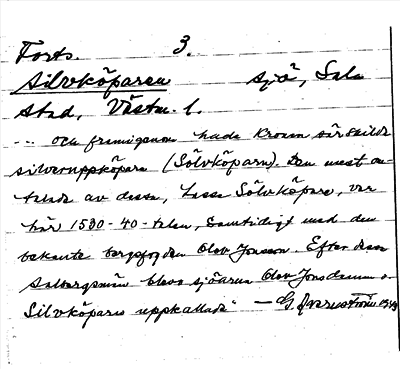 Forts. 3.
Silvköparen sjö, Sala
stad, Västm. l.
-- och framigenom hade Kronan särskilda
silveruppköpare (Sölvköparn). Den mest om-
talade av dessa, Lasse Sölvköpare, var
här 1530-40-talen, samtidigt med den
bekante bergsfogden Olov Jonsson. Efter dem
Salbergsmän blevo sjöarna Olov Jonsdamm o.
Silvköparn uppkallade" — G. 1949